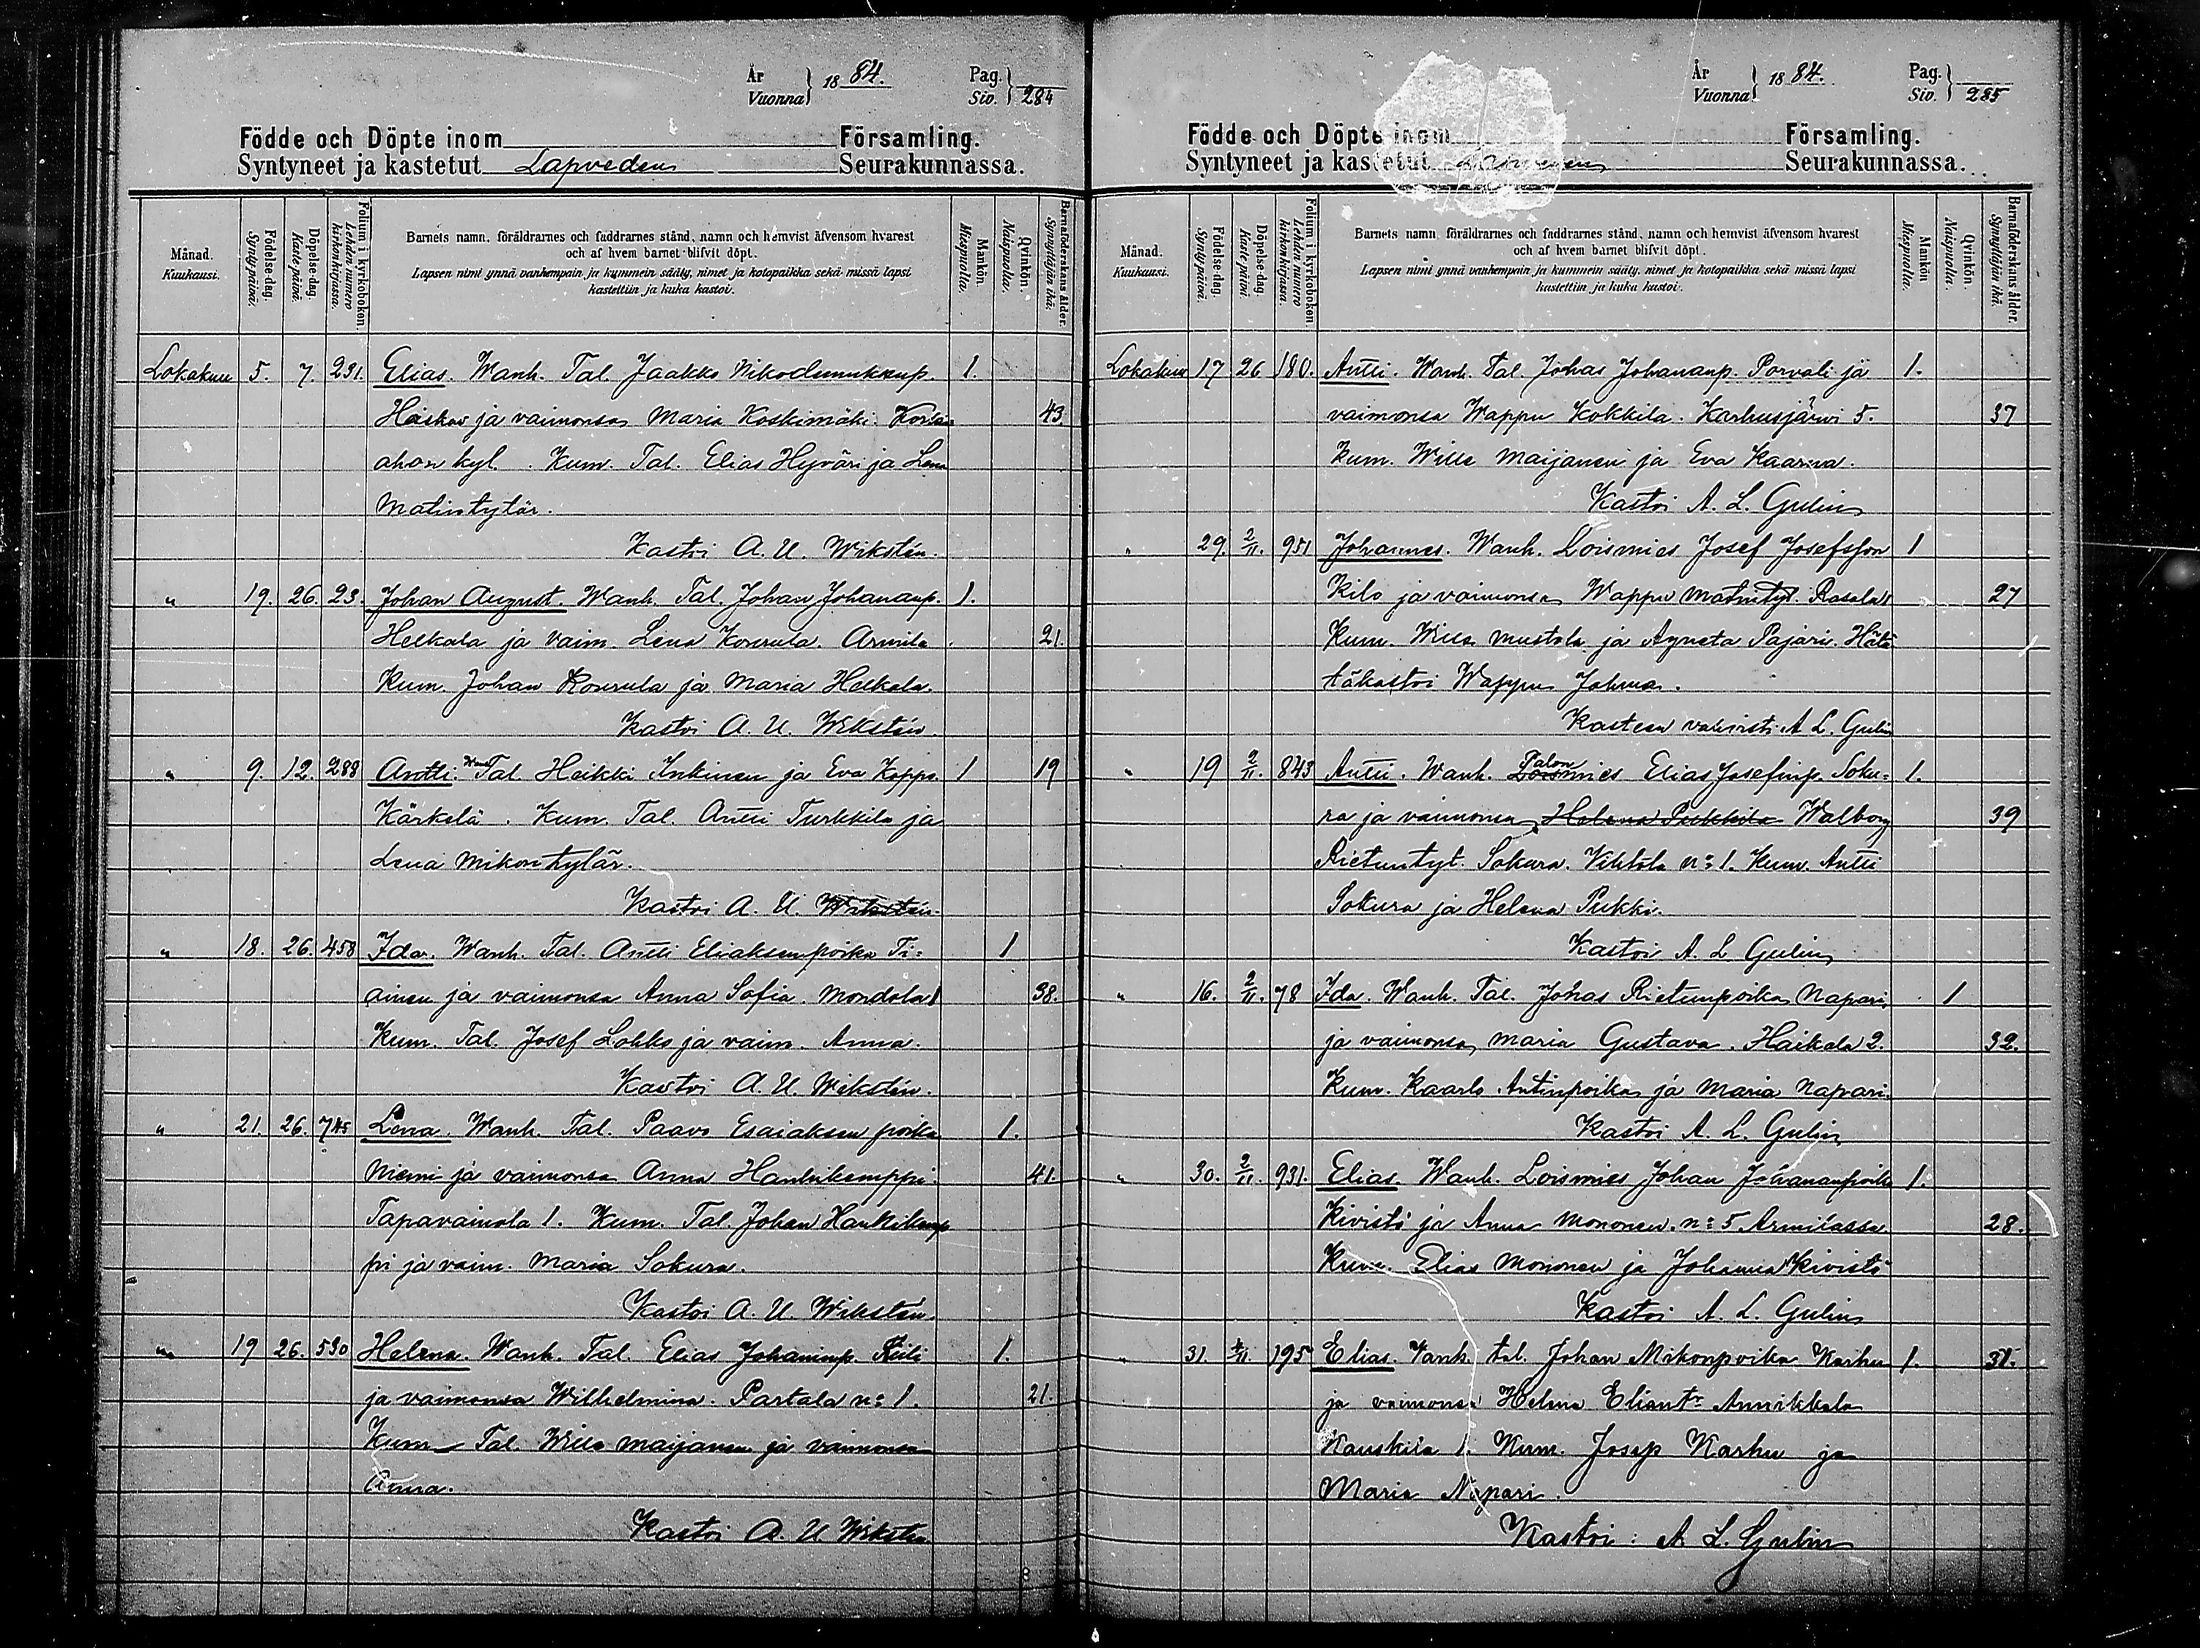 År
Vuonna } 18 84.
Pag.
Siv. } 284
Födde och Döpte inom Församling.
Syntyneet ja kastetut Lapveden Seurakunnassa.
Månad.
Kuukausi.
Födelse-dag.
Syntypäivä.
Döpelse-dag
Kaste-päivä.
Folium i kyrkoboken.
Lehden numero kirkonkirjassa.
Barnets namn, föräldrarnes och faddrarnes stånd, namn och hemvist äfvensom hvarest
och af hvem barnet blifvit döpt.
Lapsen nimi ynnä vanhempain ja kummein sääty, nimet ja kotopaikka sekä missä lapsi
kastettiin ja kuka kastoi.
Mankön.
Miespuolia.
Qvinkön.
Naispuolia.
Barnaföderskans ålder.
Synnyttäjän ikä.
Lokakuu 5. 7. 231. Elias. Wanh. Tal. Jaakko Nikodemuksenp. 1.
ja vaimonsa Maria Koskimäki. 43
ahon kyl. Kum. Tal. Elias Hyväri ja Lena
Matintytär.
Kastoi A. U. Wikstén.
" 19. 26. 23. Johan August. Wanh. Tal. Johan Johananp. 1.
Heikala ja vaim. Lena Konrula. Armila 21.
Kum. Johan Konrula ja Maria Heikala.
Kastoi A. U. Wikstén.
" 9. 12. 288 Antti. Wanh. Tal. Heikki Inkinen ja Eva Koppe. 1 19
Kärkelä. Kum. Tal. Antti Turkkila ja
Lena Mikontytär.
Kastoi A. U. Wikstén.
" 18. 26. 458 Ida. Wanh. Tal. Antti Eliaksenpoika Ti- 1
ainen ja vaimonsa Anna Sofia. Mondola 1 38.
Kum. Tal. Josef Lohko ja vaim. Anna.
Kastoi A. U. Wikstén.
" 21. 26. 745 Lena. Wanh. Tal. Paavo Esaiaksen poika 1.
Niemi ja vaimonsa Anna Hanhikemppi. 41.
Tapavainola 1. Kum. Tal. Johan Hanhikemp
pi ja vaim. Maria Sokura.
Kastoi A. U. Wikstén.
" 19 26. 530 Helena. Wanh. Tal. Elias Johaninp. Riili 1.
ja vaimonsa Wilhelmina. Partala n:o 1. 21.
Kum. Tal. Wille Maijanen ja vaimonsa
Anna.
Kastoi A. U. Wikstén
År
Vuonna } 18 84.
Pag.
Siv. } 285
Födde och Döpte inom Församling.
Syntyneet ja kastetut Lapveden Seurakunnassa.
Månad.
Kuukausi.
Födelse-dag.
Syntypäivä.
Döpelse-dag.
Kaste-päivä.
Folium i kyrkoboken.
Lehden numero kirkonkirjassa.
Barnets namn, föräldrarnes och faddrarnes stånd, namn och hemvist äfvensom hvarest
och af hvem barnet blifvit döpt.
Lapsen nimi ynnä vanhempain ja kummein sääty, nimet ja kotopaikka sekä missä lapsi
kastettiin ja kuka kastoi.
Mankön
Miespuolia.
Qvinkön.
Naispuolia.
Barnaföderskans ålder.
Synnyttäjän ikä.
Lokakuu 17 26 180. Antti. Wanh. Tal. Johas Johananp. Porvali ja 1.
vaimonsa Wappu Kokkila. Karhusjärwi 5. 37
Kum. Wille Maijanen ja Eva Kaarna.
Kastoi A. L. Gulin
" 29. 2/11. 951 Johannes. Wanh. Loismies Josef Josefsson 1
Kilo ja vaimonsa Wappu Matintyt. Rasala 1 27
Kum. Wille Mustola ja Agneta Pajari. Hätä
täkastoi Wappu Johma.
Kasteen vahvisti A. L. Gulin
" 19 2/11. 843 Antti. Wanh. Loismies Palonmies Elias Josefinp. Soku- 1.
ra ja vaimonsa Helena Pukkila Walborg 39
Rietuntyt. Sokura. Vihtola n:o 1. Kum. Antti
Sokura ja Helena Pukki.
Kastoi A. L. Gulin
" 16. 2/11. 78 Ida. Wanh. Tal. Johas Rietunpoika Napari 1
ja vaimonsa Maria Gustava. Haikala 2. 32.
Kum. Kaarlo Antinpoika ja Maria Napari.
Kastoi A. L. Gulin
" 30. 2/11. 931. Elias. Wanh. Loismies Johan Johananpoika 1.
Kivistö ja Anna Mononen. n:o 5 Armilassa 28.
Kum. Elias Mononen ja Johanna Kivistö
Kastoi A. L. Gulin
" 31. 195 Elias. Vanh. tal. Johan Mikonpoika Karhu 1. 31.
ja vaimonsa Helena Eliant:r Annikkala
Kauskila 1. Kum. Josep Karhu ja
Maria Napari.
Kastoi: A. L. Gulin